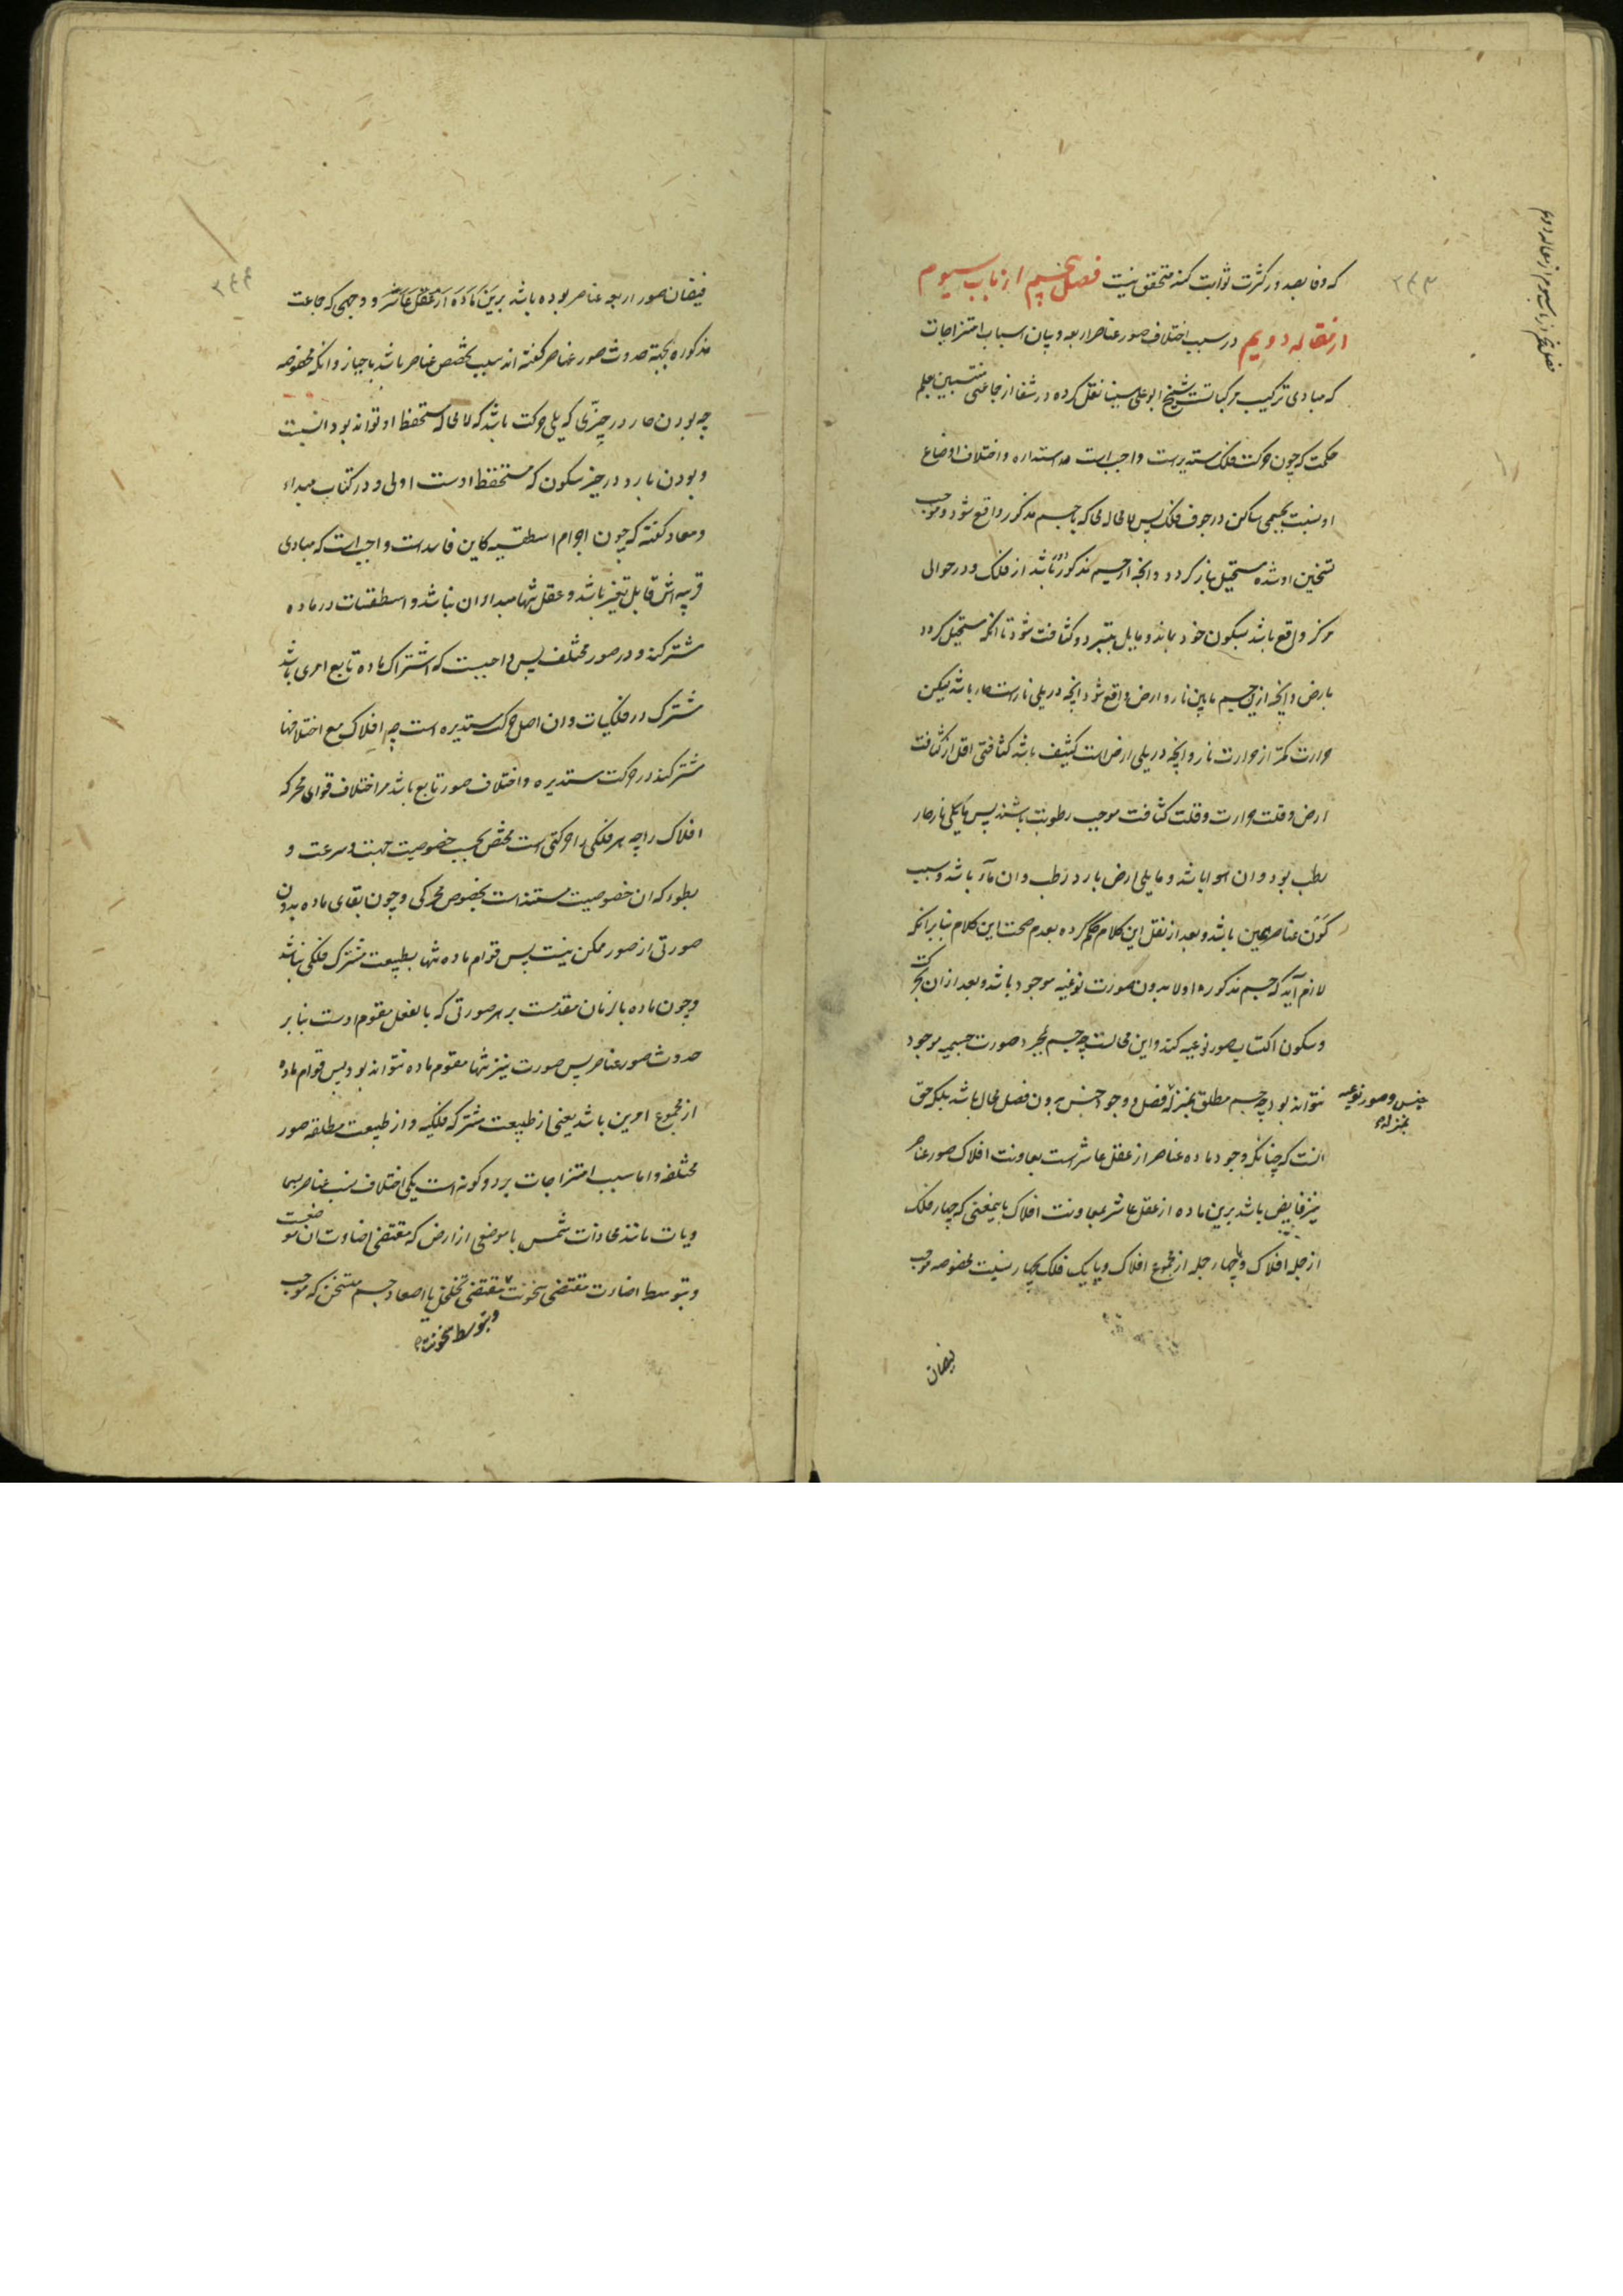 که وفا بصدور کثرت ثوابت کند متحقق نیست فصل پنجم از باب سیوم
از مقاله دویم در سبب اختلاف صور عناصر اربعه و بیان اسباب امتزاجات
که مبادی ترکیب مرکباتست شیخ ابو علی سینا نقل کرده در شفا از جماعتی منتسبین بعلم
حکمت که چون حرکت فلک مستدیرست واجبست استداره و اختلاف اوضاع
او بنسبت بجسمی ساکن در جوف فلک پس لامحاله محاکه با جسم مذکور واقع شود و موجب
تسخین او شده مستحیل بنار گردد و آنچه از جسم مذکور دور باشد از فلک و در حوالی
مرکز واقع باشد بسکون خود بماند و مایل بتبرد و کثافت شود تا آنکه مستحیل گردد
بارض و آنچه ازین جسم مابین نار و ارض واقع شود آنچه در یلی نارست حار باشد لیکن
حرارت کمتر از حرارت نار و آنچه در یلی ارض است کثیف باشد کثافتی اقل از کثافت
ارض و قلت حرارت و قلت کثافت موجب رطوبت باشند پس مایلی نار حار
رطب بود و آن هوا باشد و مایلی ارض بارد رطب و آن ماء باشد و سبب
کون عناصر همین باشد و بعد از نقل این کلام حکم کرده بعدم صحت این کلام بنابر آنکه
لازم آید که جسم مذکوره اولا بدون صورت نوعیه موجود باشد و بعد از آن بحرکت
و سکون اکتساب صور نوعیه کند و این محالست چه جسم بمجرد صورت جسمیه موجود
نتواند بود چه جسم مطلق بمنزله فصل و وجود جنس بدون فصل محال باشد بلکه حق
جنس و صور نوعیه بمنزله
آنست که چنانکه وجود ماده عناصر از عقل عاشر است بمعاونت افلاک صور عناصر
نیز فایض باشد برین ماده از عقل عاشر بمعاونت افلاک باینمعنی که چهار فلک
از جمله افلاک و یا چهار جمله از مجموع افلاک و یا یک فلک بچهار نسبت مخصوصه موجب
فیضان
فیضان صور اربعه عناصر بوده باشد برین ماده از عقل عاشر و وجهی که جماعت
مذکوره بجهة حدوث صور عناصر گفته اند سبب تخصص عناصر باشد باحیاز و امکنه مخصوصه
چه بودن حار در حیزی که یلی حرکت باشد که لامحاله مستحفظ او تواند بود انسبت
و بودن بارد در حیز سکون که مستحفظ اوست اولی و در کتاب مبداء
و معاد گفته که چون اجرام اسطقسیه کاین فاسدست واجبست که مبادی
قریبه اش قابل تغیر باشد و عقل تنها مبدا آن نباشد و اسطقسات در ماده
مشترکند و در صور مختلف پس واجبست که اشتراک ماده تابع امری باشد
مشترک در فلکیات و آن اصل حرکت مستدیره است چه افلاک مع اختلافها
مشترکند در حرکت مستدیره و اختلاف صور تابع باشد مر اختلاف قوای محرکه
افلاک را چه هر فلکی را حرکتی است مختص بحسب خصوصیت جهت و سرعت و
بطوء که آن خصوصیت مستندست بخصوص محرکی و چون بقای ماده بدون
صورتی از صور ممکن نیست پس قوام ماده تنها بطبیعت مشترک فلکی نباشد
و چون ماده بالزمان مقدمست بر هر صورتی که بالفعل مقوم اوست بنابر
حدوث صور عناصر پس صورت نیز تنها مقوم ماده نتواند بود پس قوام ماده
از مجموع امرین باشد یعنی از طبیعت مشترکه فلکیه و از طبیعت مطلقه صور
مختلفه و اما سبب امتزاجات بر دو گونه است یکی اختلاف نسب عناصر بسما
ویات مانند محاذات شمس با موضعی از ارض که مقتضی اضاءت آن موضعست
و بتوسط اضاءت مقتضی سخونت مقتضی تخلخل یا اصعاد جسم متسخن که موجب
و بتوسط سخونت